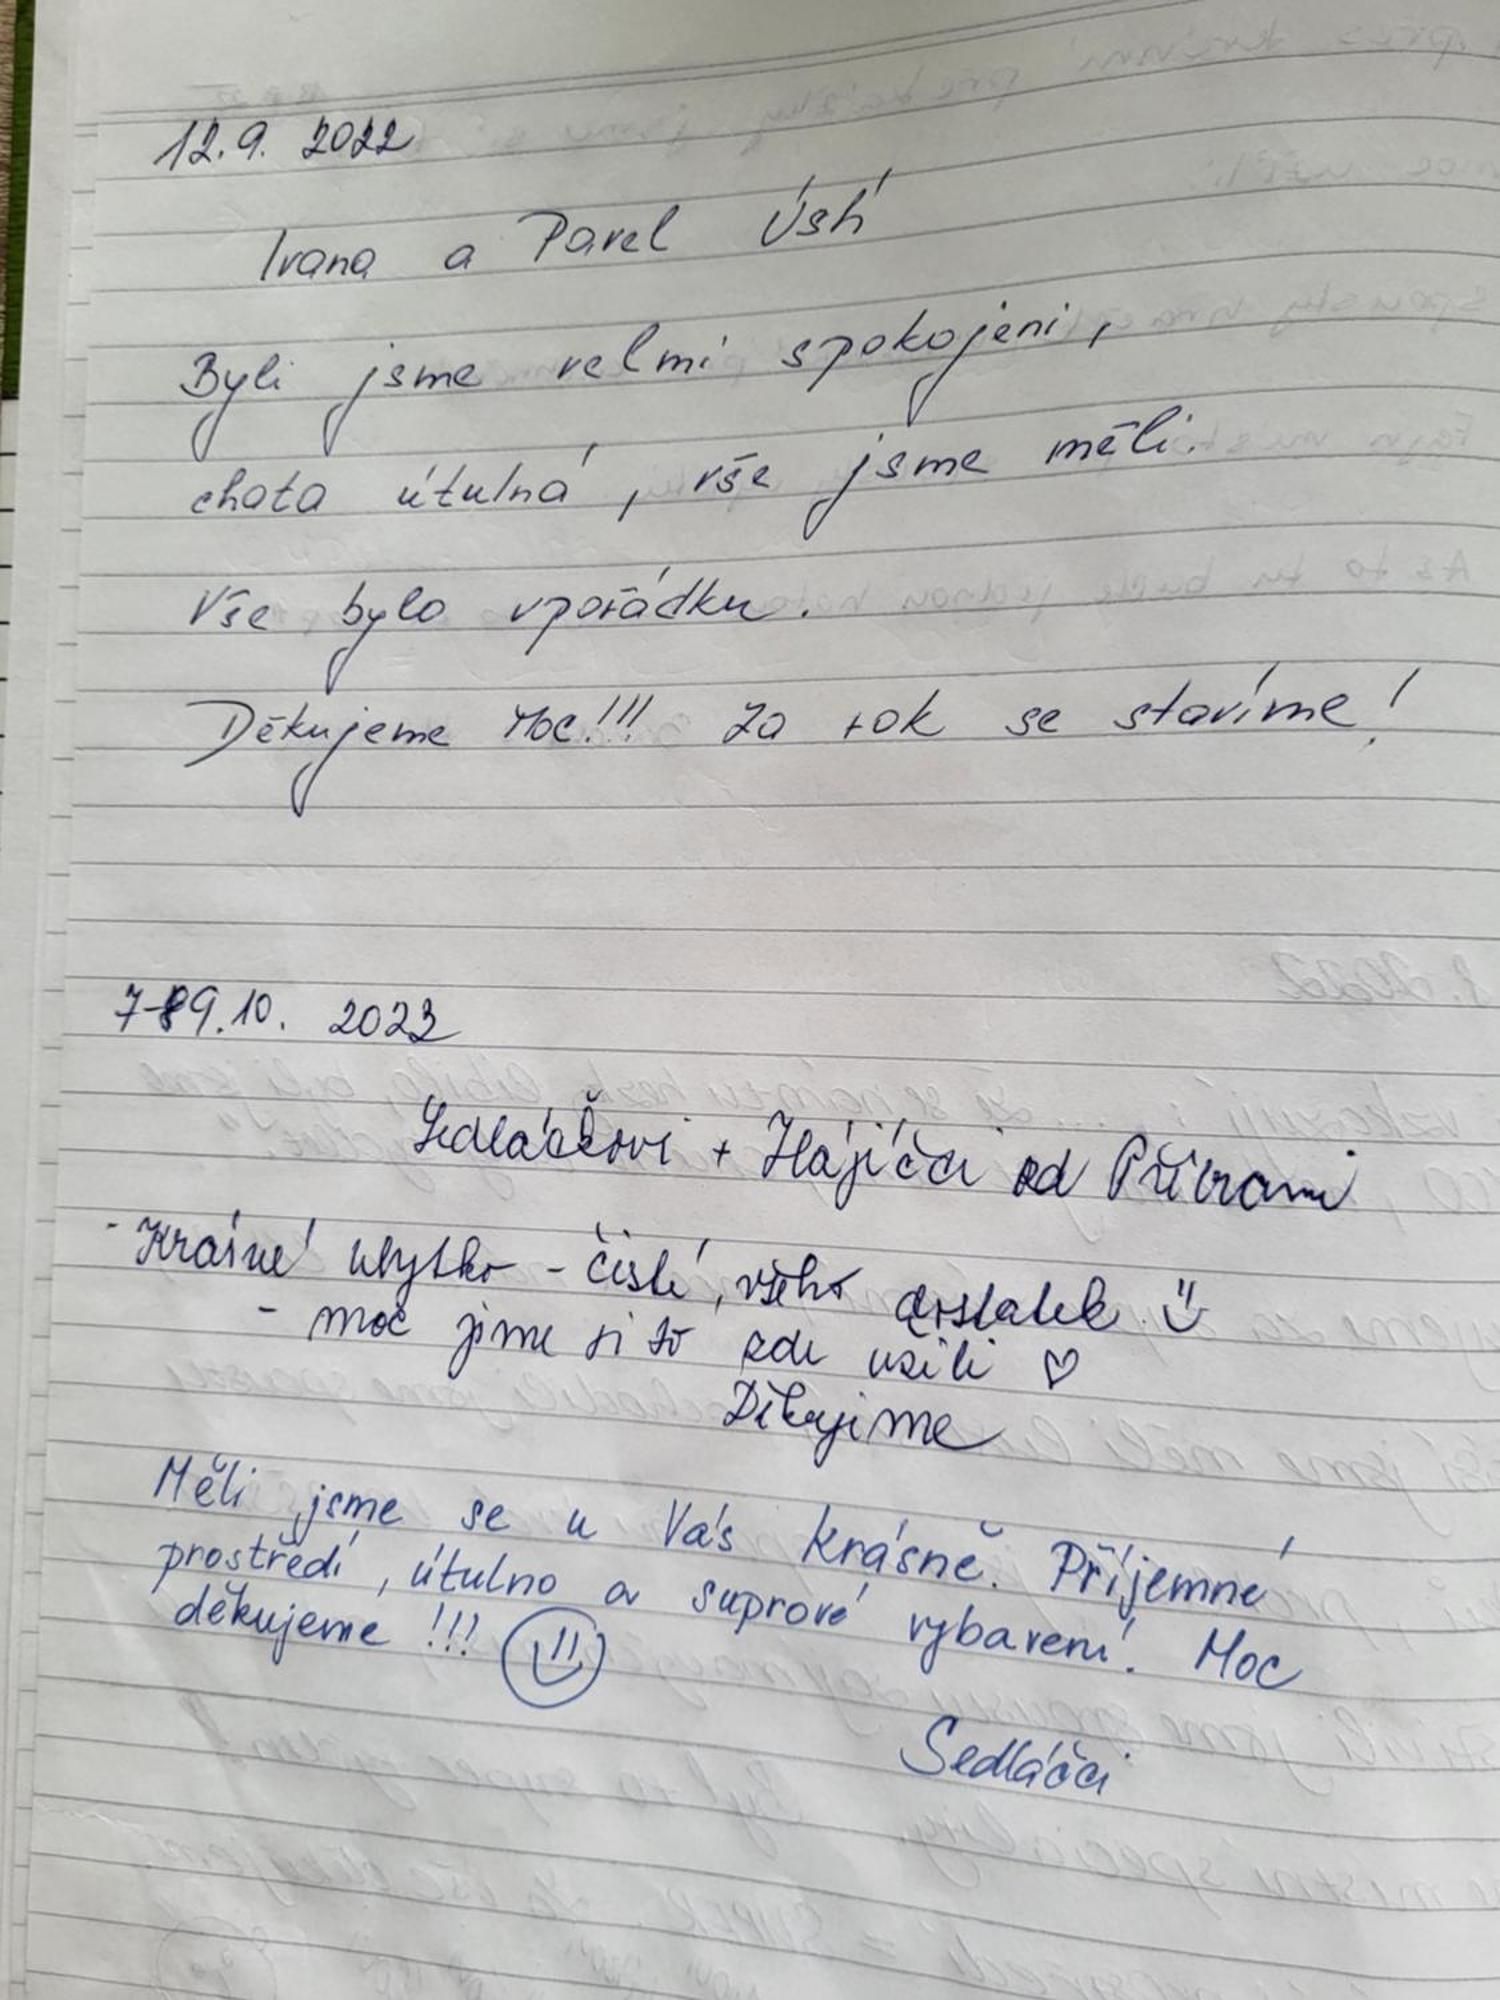 12.9. 2022
Ivana a Pavel Ústí
Byli jsme velmi spokojeni,
chata útulná, vše jsme měli.
Vše bylo vpořádku.
Děkujeme Moc!!! Za rok se stavíme!
9.10. 2022
Sedláčkovi + Hájíčci od Příbrami
- Krásné ubytko - čisté, všeho dostatek
- moc jsme si to zde užili ♡
Děkujeme
Měli jsme se u Vás krásně. Příjemné
prostředí, útulno a suprové vybavení. Moc
děkujeme !!!
Sedláčci